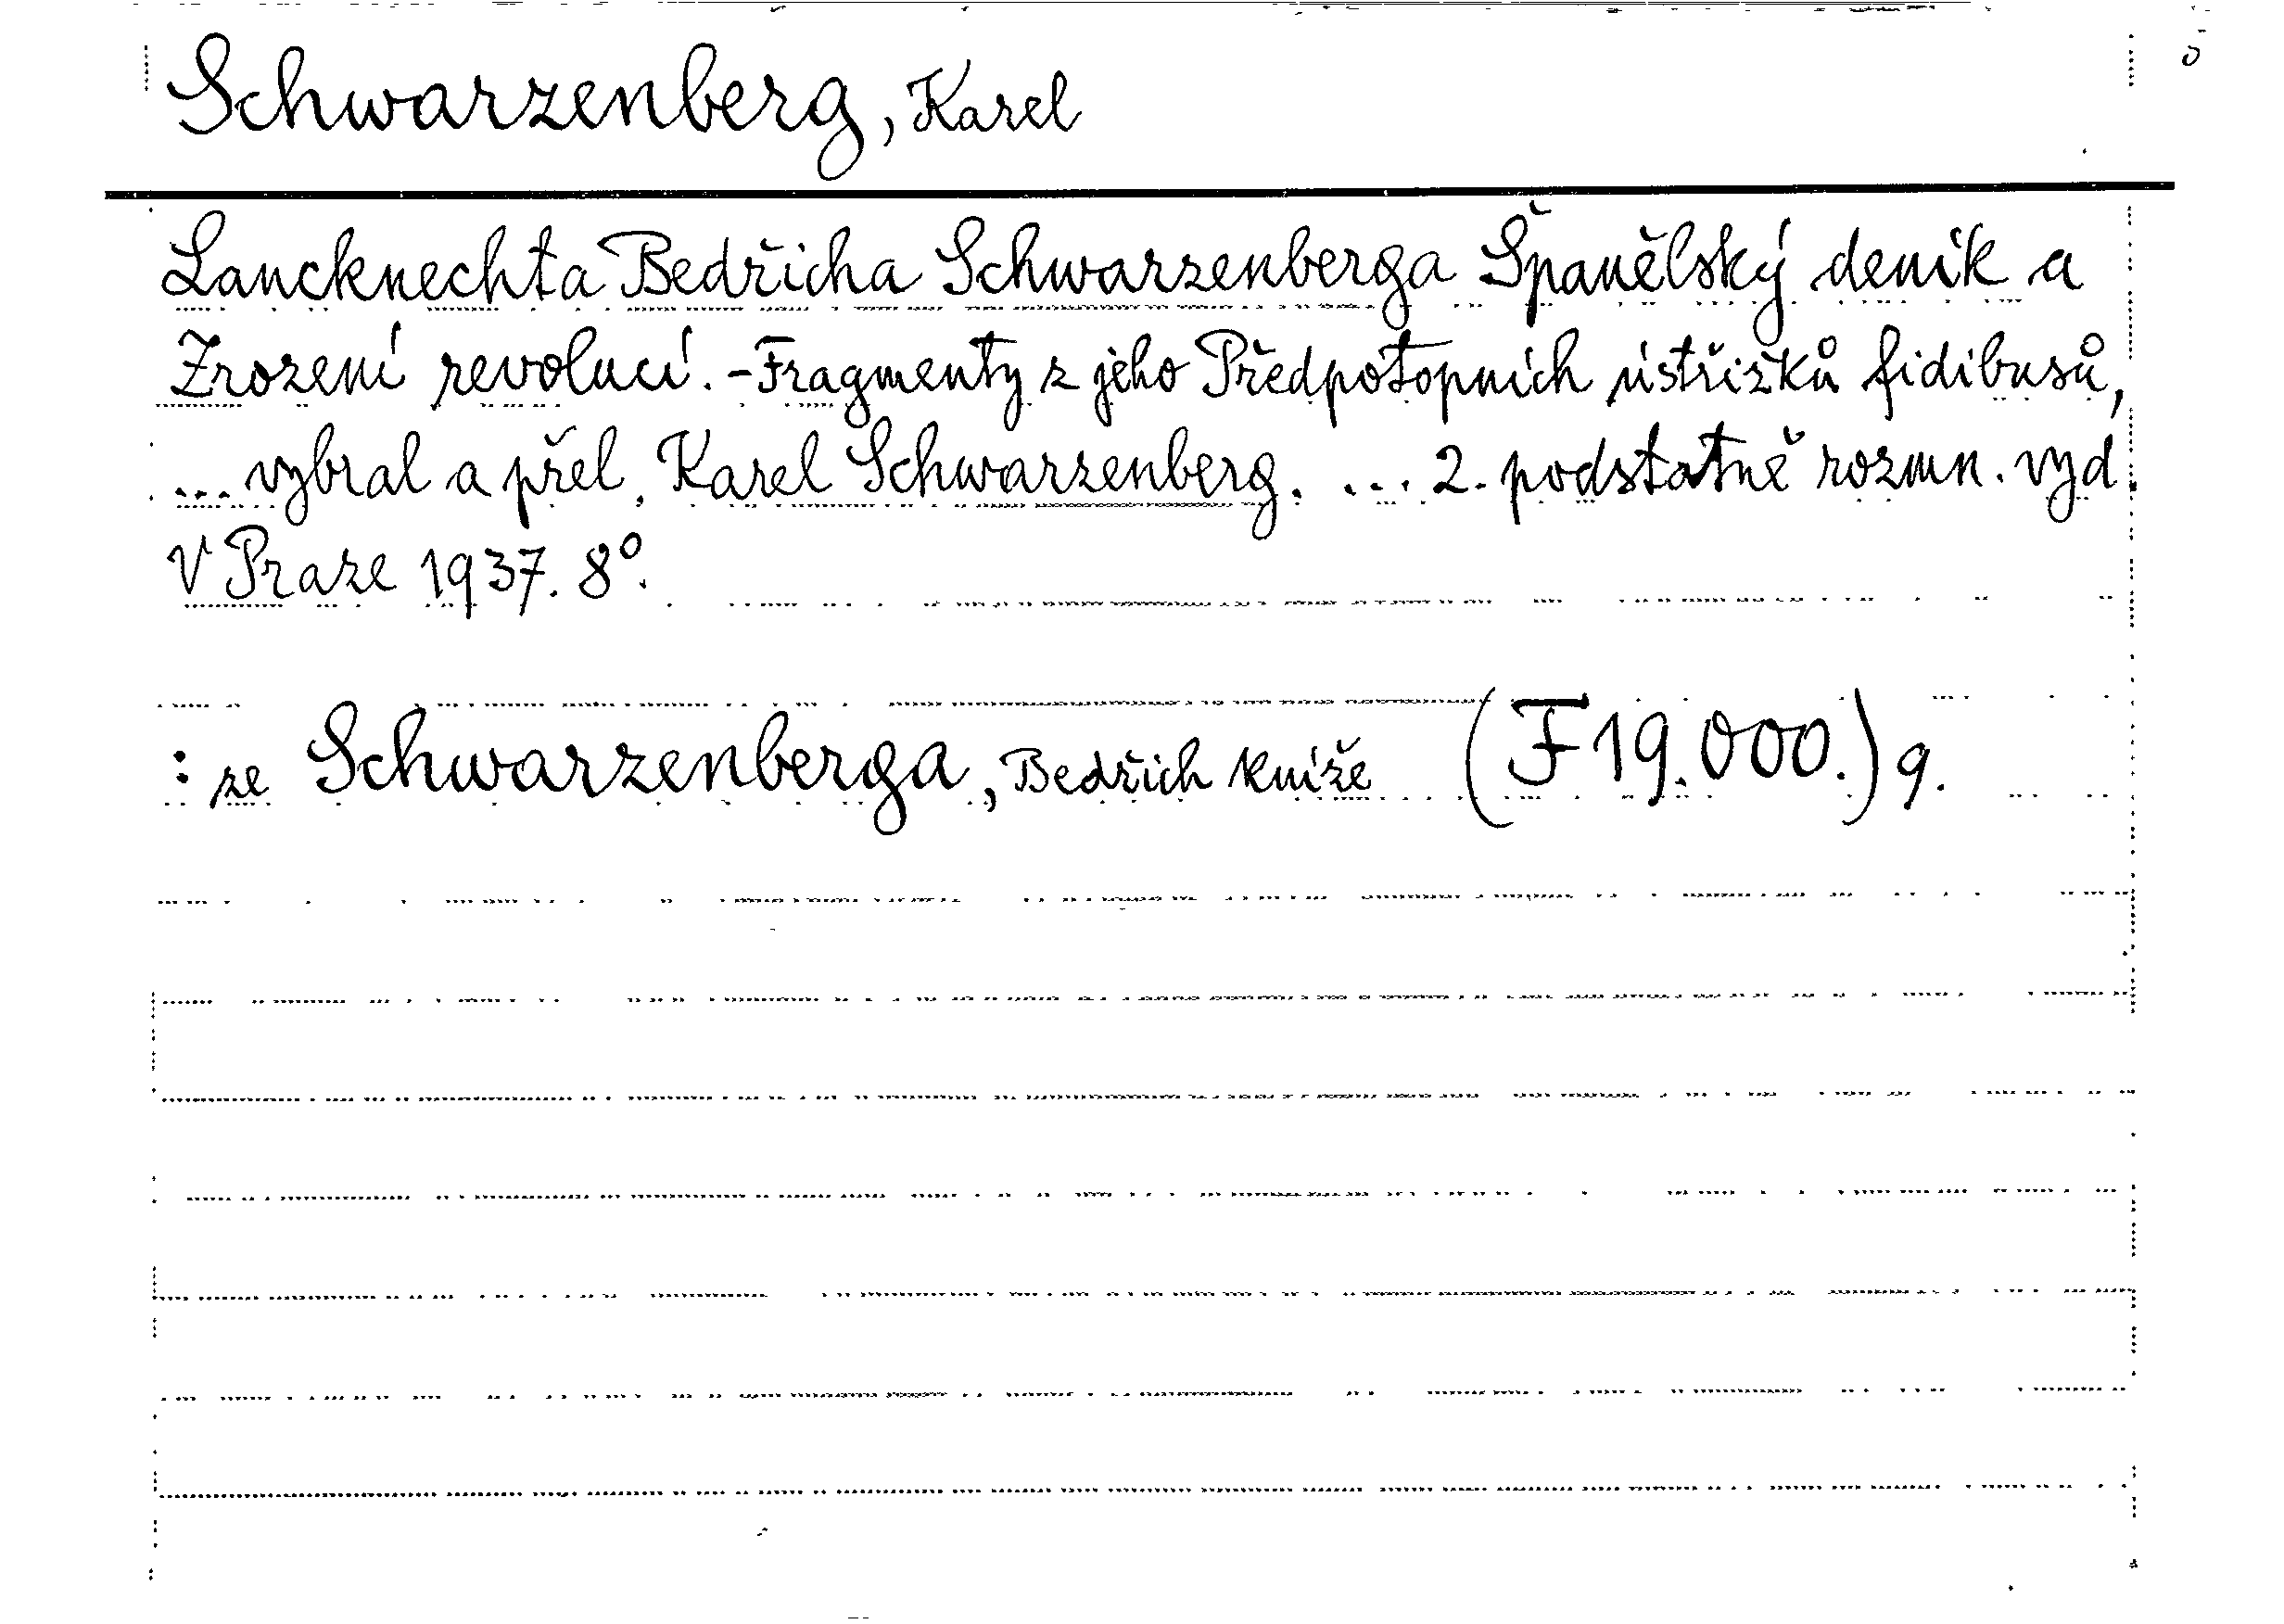 Schwarzenberg, Karel
Lancknechta Bedřicha Schwarzenberga Španělský deník a
Zrození revolucí. - Fragmenty z jeho Předpotopních ústřižků fidibusů,
... vybral a přel. Karel Schwarzenberg. ... 2. podstatně rozmn. vyd.
V Praze 1937. 8°.
: ze Schwarzenberga, Bedřich kníže (F 19.000.) 9.